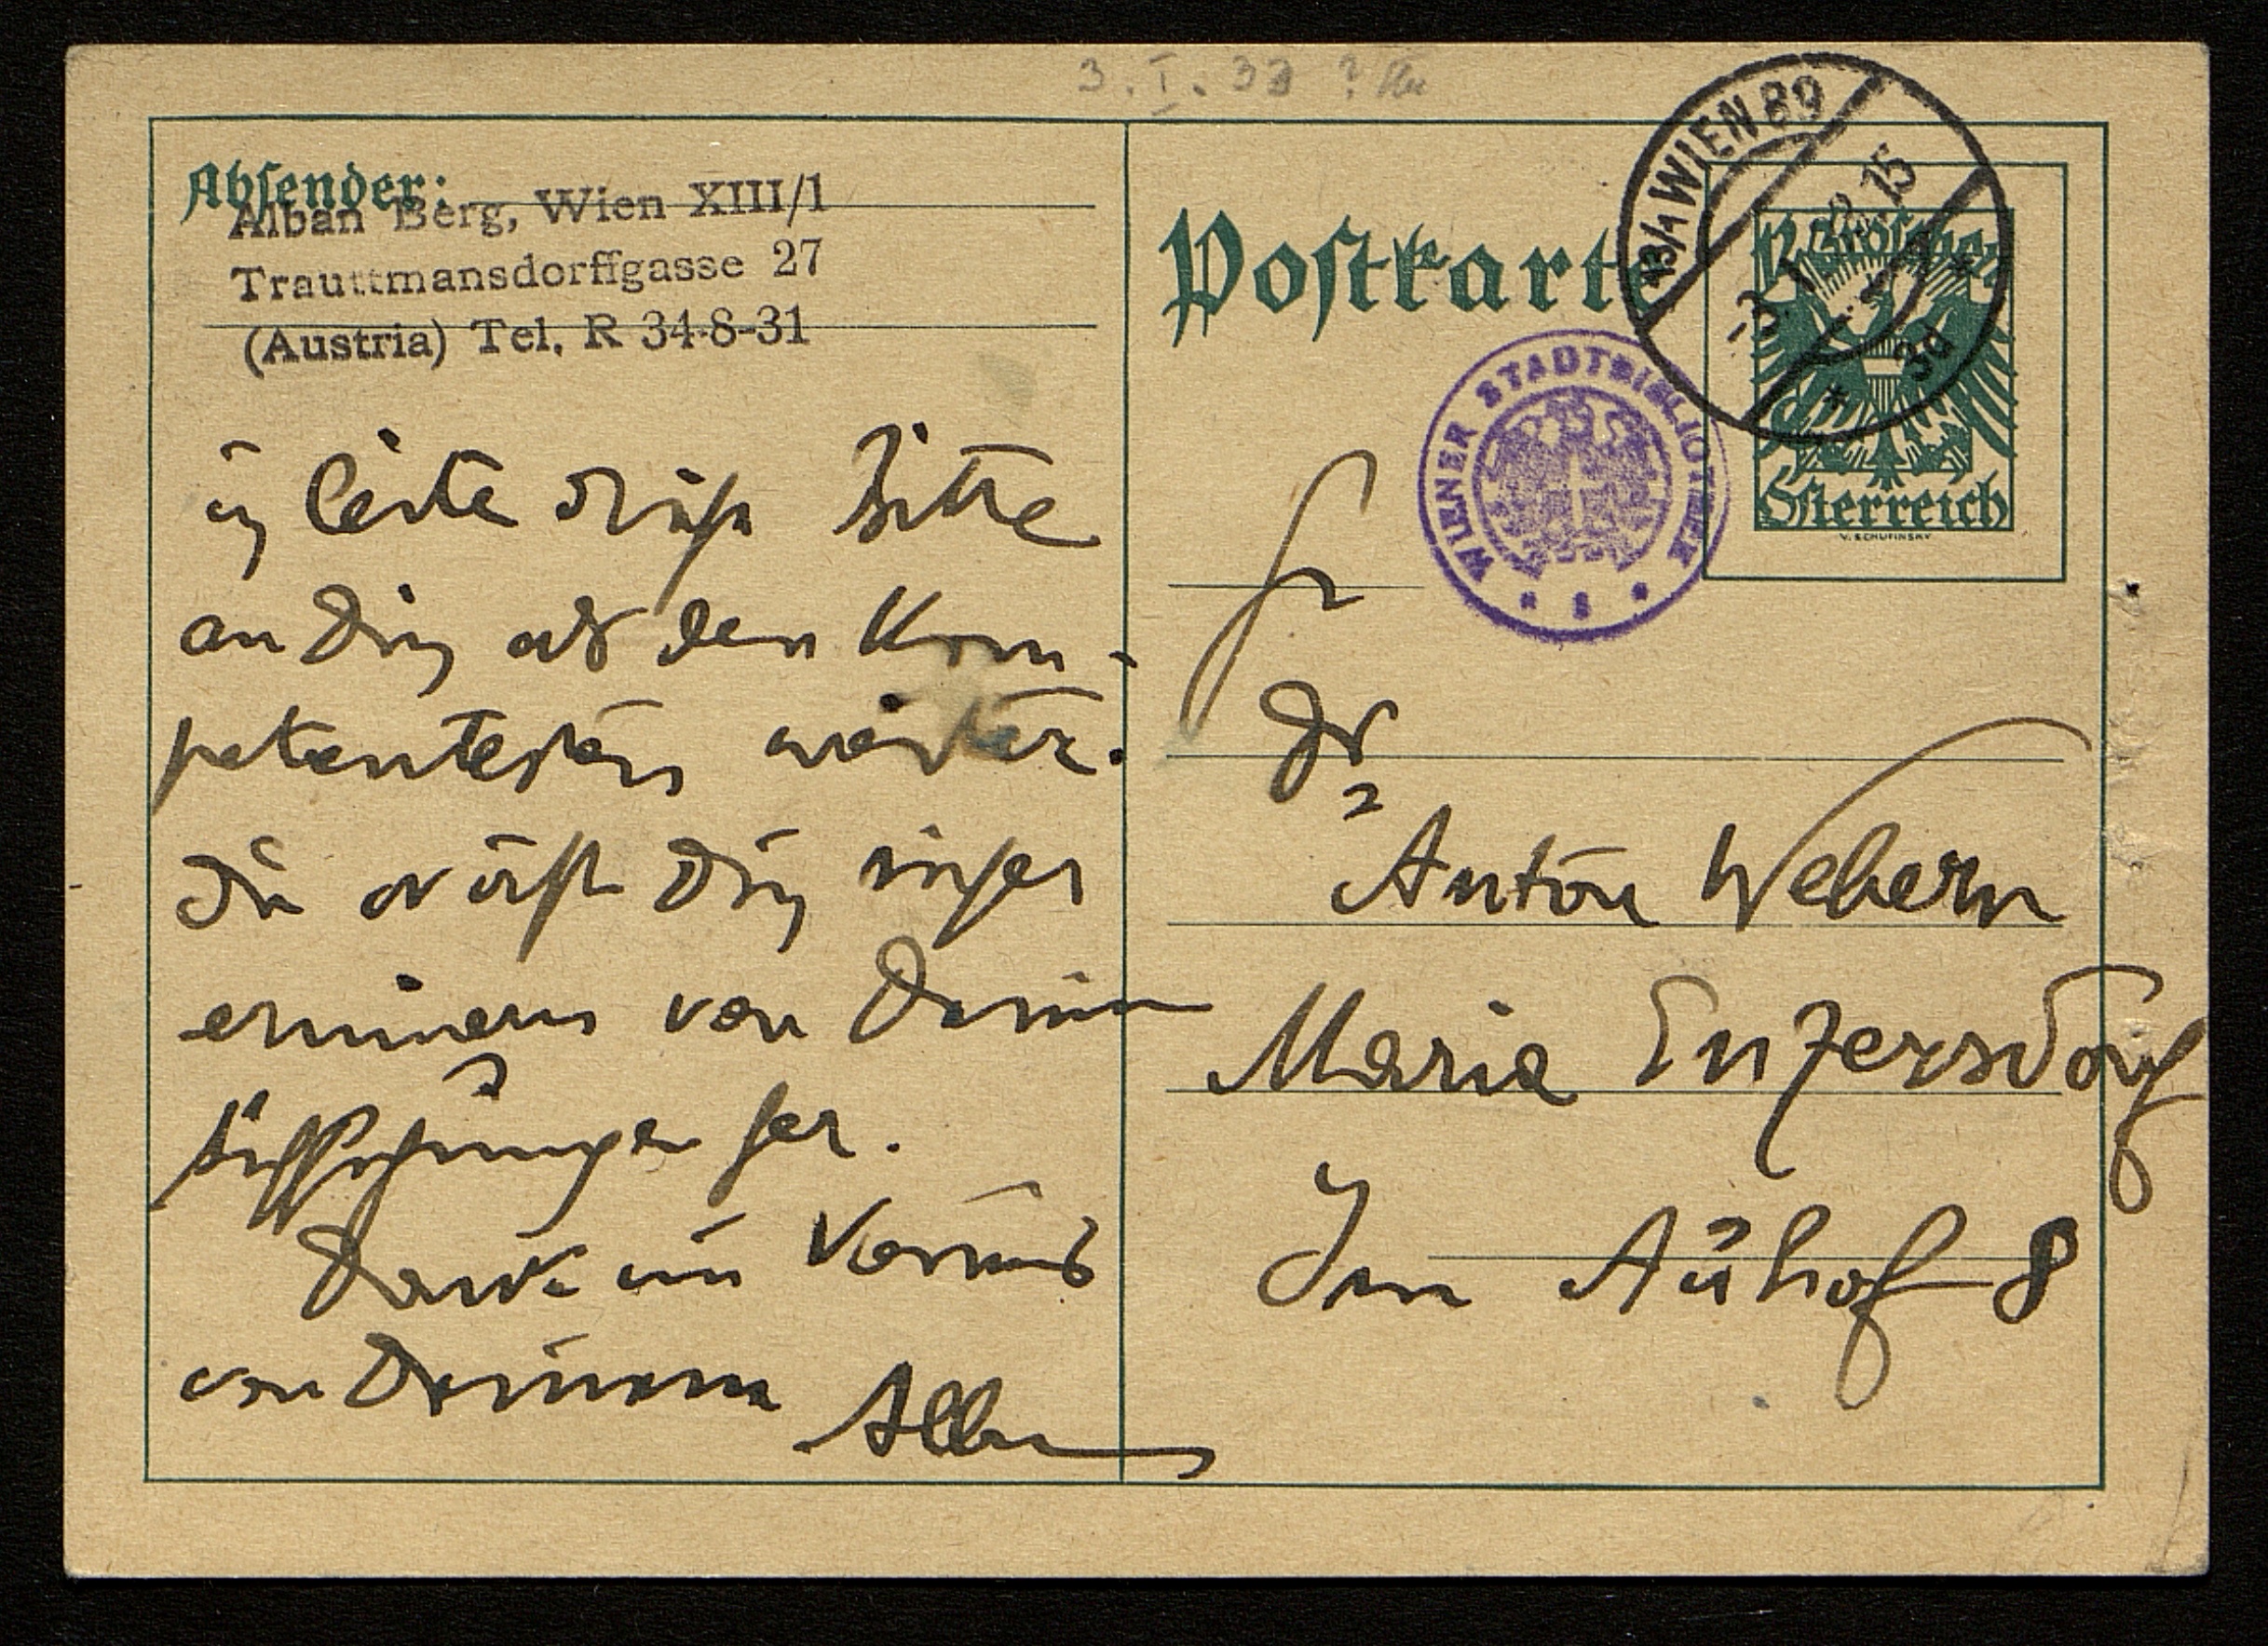 3. I. 33 ?
Absender:
Alban Berg, Wien XIII/1
Trauttmansdorffgasse 27
(Austria) Tel. R 34-8-31
ich leite diese Bitte
an Dich als den Kom-
petentesten weiter.
Du wirst Dich sicher
erinnern von Deinen
Aufführungen her.
Dank im Voraus
von Deinem Alban
Postkarte
13/1 WIEN 89
-3. I 15
* 3d
12 Groschen
Österreich
V. SCHUFINSKY
WIENER STADTBIBLIOTHEK
Hr
Dr
Anton Webern
Maria Enzersdorf
Im Auhof 8